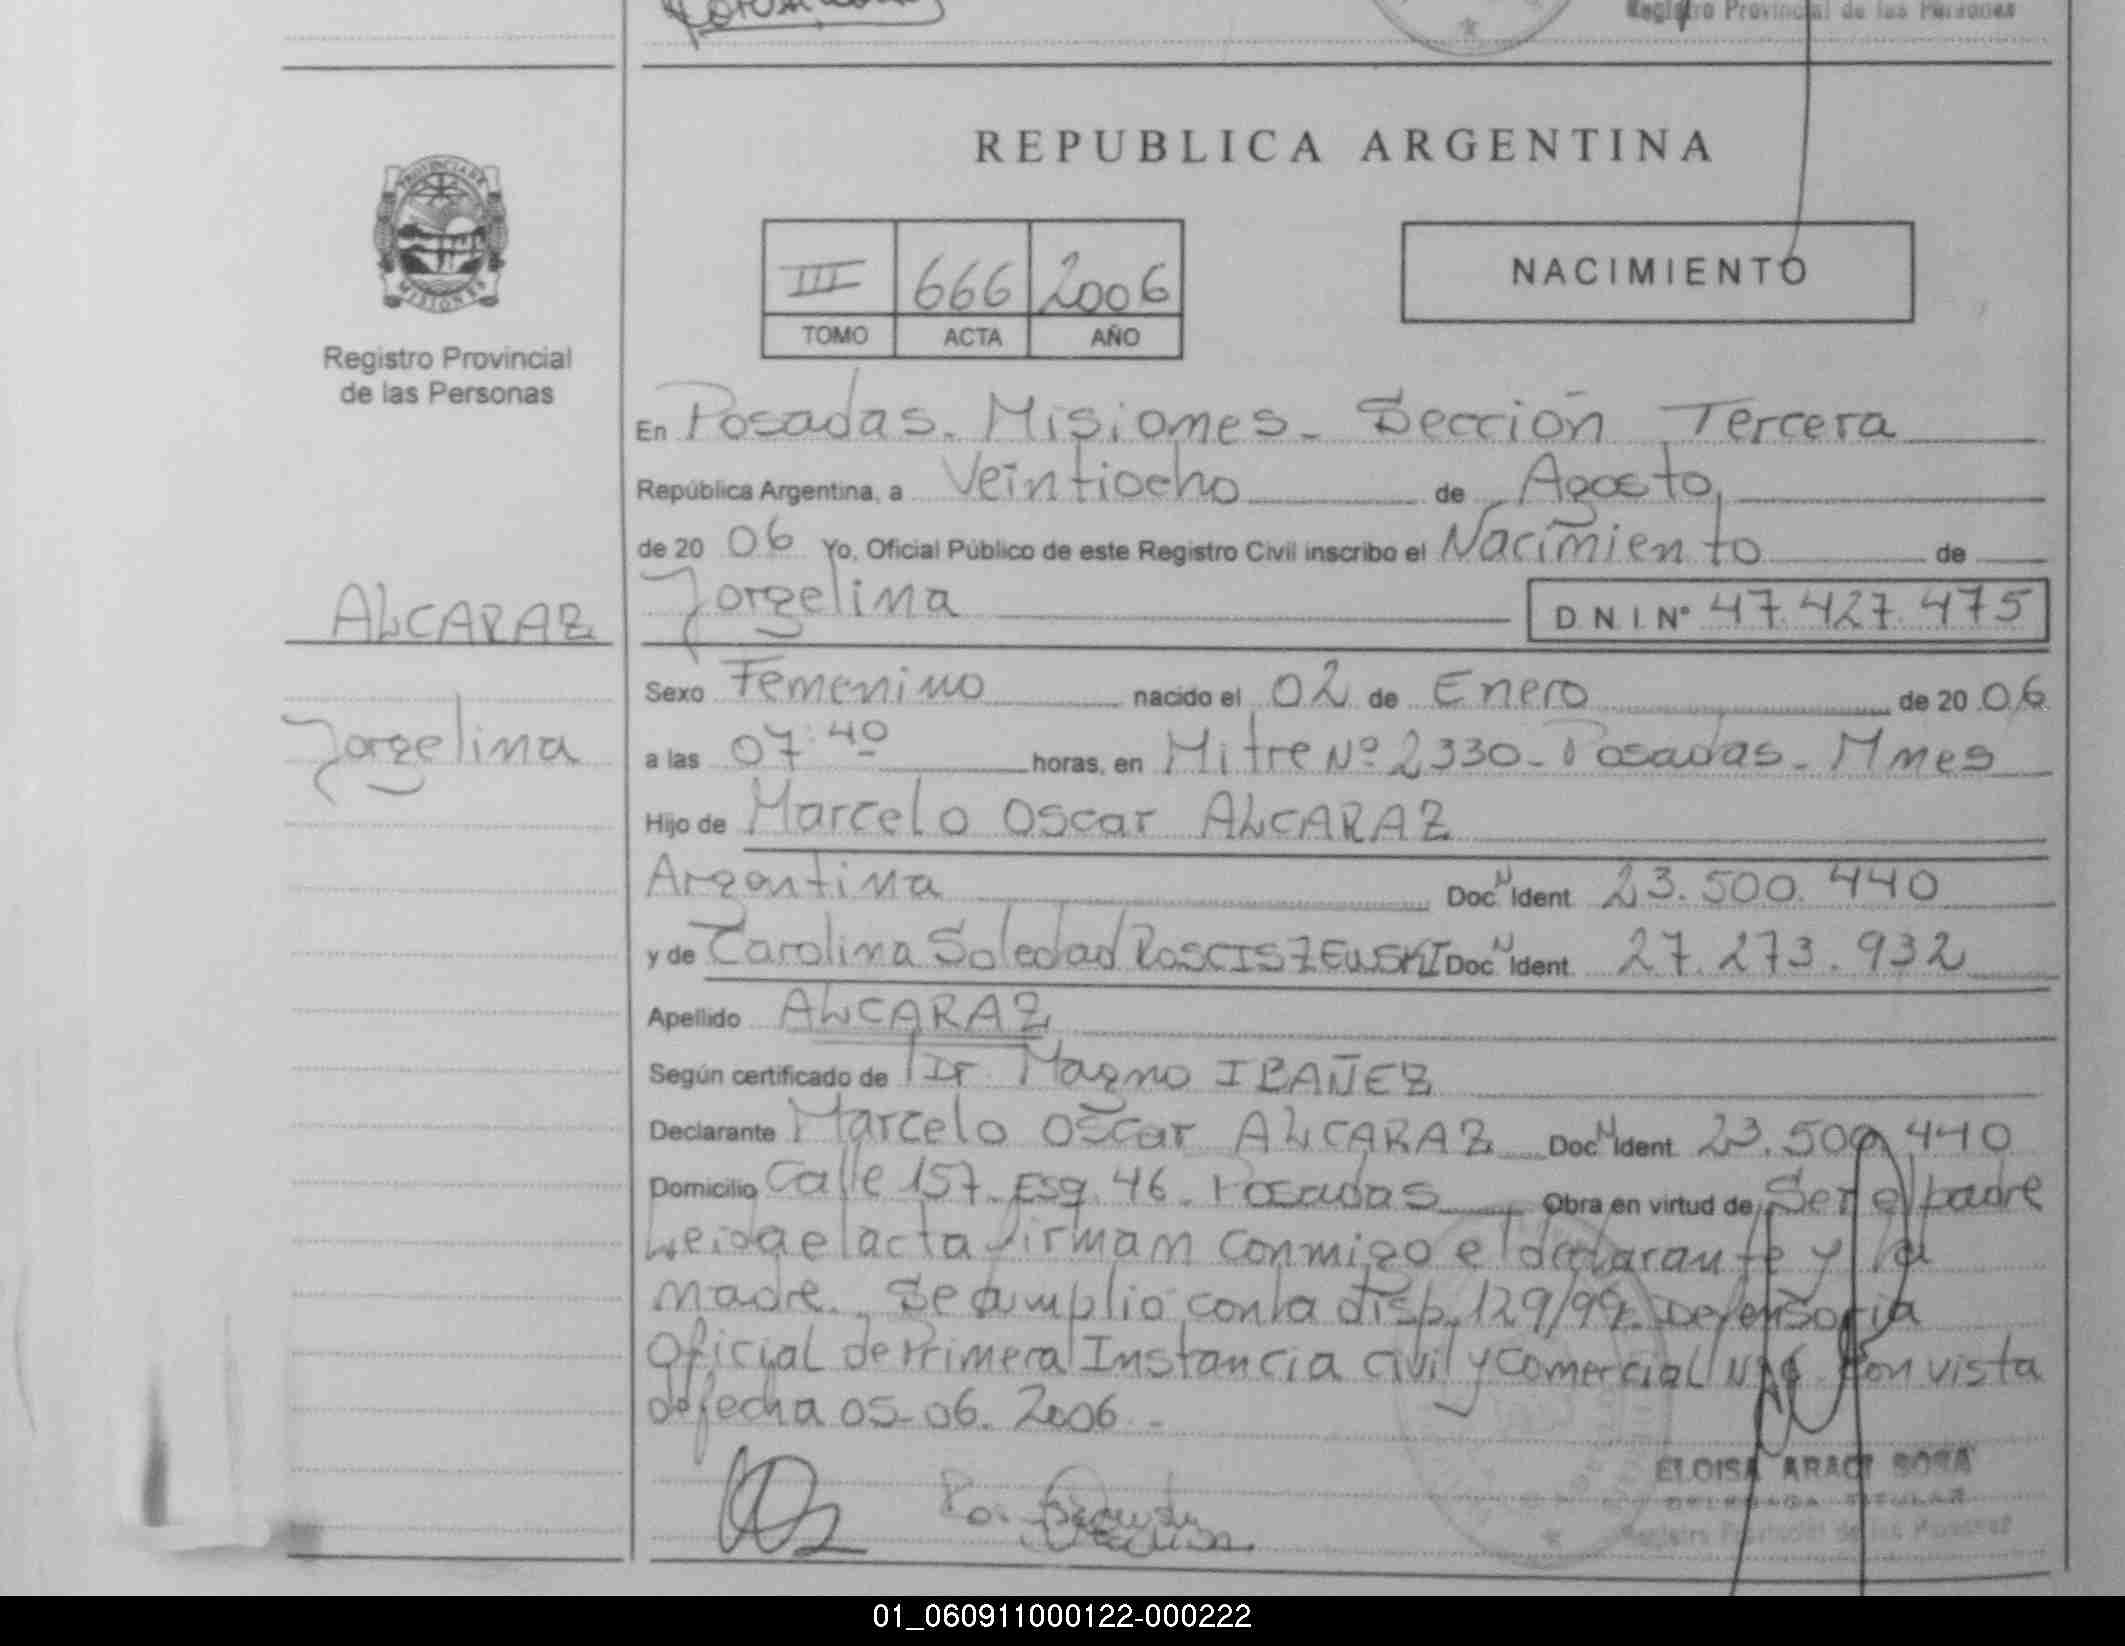 Registro Provincial de las Personas
PROVINCIA DE
MISIONES
Registro Provincial
de las Personas
ALCARAZ
Jorgelina
REPUBLICA ARGENTINA
III 666 2006
TOMO ACTA AÑO
NACIMIENTO
En Posadas. Misiones. Sección Tercera
República Argentina, a Veintiocho de Agosto
de 20 06 Yo, Oficial Público de este Registro Civil inscribo el Nacimiento de
Jorgelina D N I Nº 47.427.475
Sexo Femenino nacido el 02 de Enero de 20 06
a las 07:40 horas, en Mitre Nº 2330. Posadas. Mnes
Hijo de Marcelo Oscar ALCARAZ
Argentina Doc. N Ident. 23.500.440
y de Carolina Soledad ROSCISZEWSKI Doc. N Ident. 27.273.932
Apellido ALCARAZ
Según certificado de Dr. Magno IBAÑEZ
Declarante Marcelo Oscar ALCARAZ Doc. N Ident. 23.500.440
Domicilio Calle 157. Esq. 46. Posadas Obra en virtud de Ser el padre
Leida el acta firman conmigo el declarante y la
madre. Se cumplio con la disp. 129/99. Defensoria
Oficial de Primera Instancia Civil y Comercial Con vista
de fecha 05-06. 2006.-
ELOISA ARACI SOSA
DELEGADA TITULAR
Registro Provincial de las Personas
01_060911000122-000222